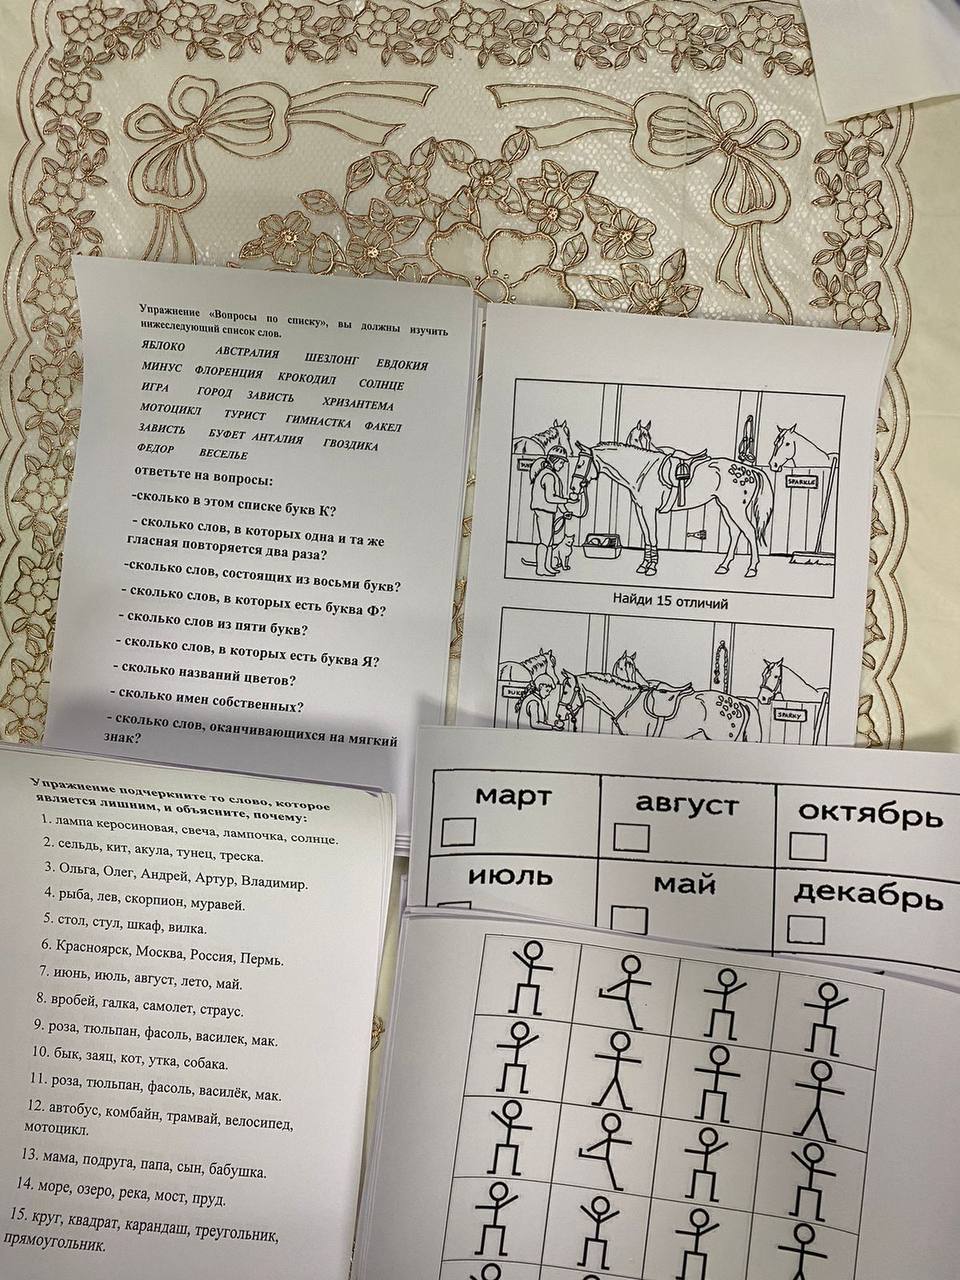 Упражнение «Вопросы по списку», вы должны изучить
нижеследующий список слов.
ЯБЛОКО АВСТРАЛИЯ ШЕЗЛОНГ ЕВДОКИЯ
МИНУС ФЛОРЕНЦИЯ КРОКОДИЛ СОЛНЦЕ
ИГРА ГОРОД ЗАВИСТЬ ХРИЗАНТЕМА
МОТОЦИКЛ ТУРИСТ ГИМНАСТКА ФАКЕЛ
ЗАВИСТЬ БУФЕТ АНТАЛИЯ ГВОЗДИКА
ФЕДОР ВЕСЕЛЬЕ
ответьте на вопросы:
-сколько в этом списке букв К?
- сколько слов, в которых одна и та же
гласная повторяется два раза?
-сколько слов, состоящих из восьми букв?
- сколько слов, в которых есть буква Ф?
- сколько слов из пяти букв?
- сколько слов, в которых есть буква Я?
- сколько названий цветов?
- сколько имен собственных?
- сколько слов, оканчивающихся на мягкий
знак?
SPARKLE
Найди 15 отличий
SPARKY
Упражнение подчеркните то слово, которое
является лишним, и объясните, почему:
1. лампа керосиновая, свеча, лампочка, солнце.
2. сельдь, кит, акула, тунец, треска.
3. Ольга, Олег, Андрей, Артур, Владимир.
4. рыба, лев, скорпион, муравей.
5. стол, стул, шкаф, вилка.
6. Красноярск, Москва, Россия, Пермь.
7. июнь, июль, август, лето, май.
8. вробей, галка, самолет, страус.
9. роза, тюльпан, фасоль, василек, мак.
10. бык, заяц, кот, утка, собака.
11. роза, тюльпан, фасоль, василёк, мак.
12. автобус, комбайн, трамвай, велосипед,
мотоцикл.
13. мама, подруга, папа, сын, бабушка.
14. море, озеро, река, мост, пруд.
15. круг, квадрат, карандаш, треугольник,
прямоугольник.
март август октябрь
июль май декабрь